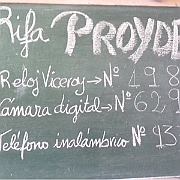 Rifa PROYDE
Reloj Viceroy→Nº 198
Cámara digital→Nº 629
Teléfono inalámbrico Nº 93